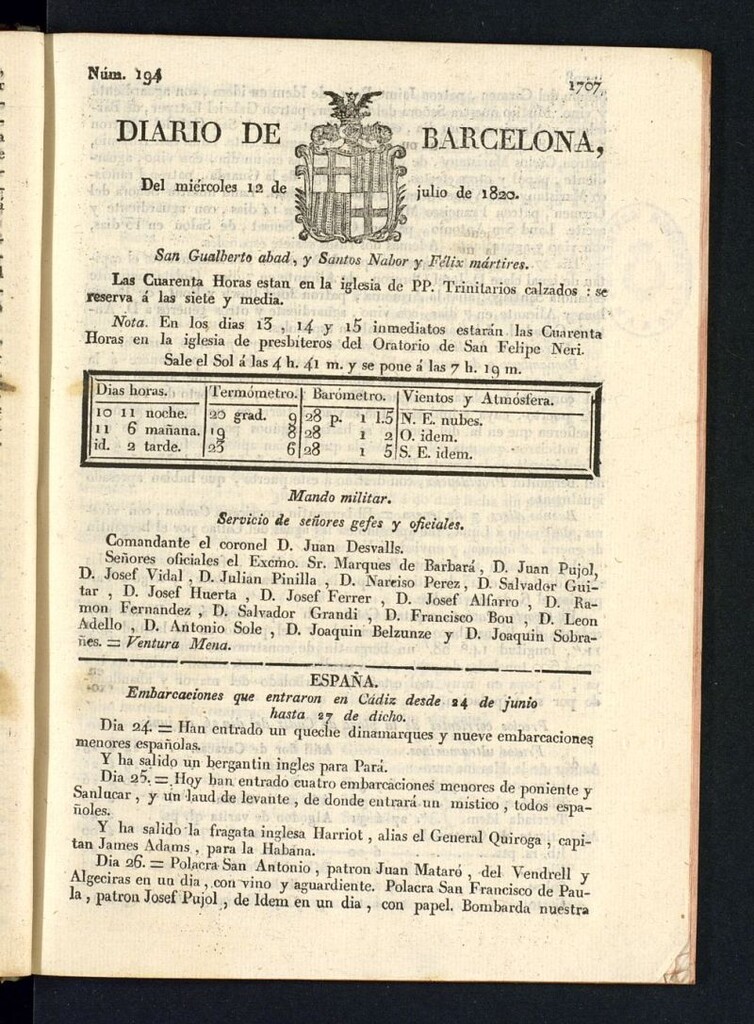 Núm. 194
1707
DIARIO DE BARCELONA,
Del miércoles 12 de julio de 1820.
San Gualberto abad, y Santos Nabor y Félix mártires.
Las Cuarenta Horas estan en la iglesia de PP. Trinitarios calzados : se
reserva á las siete y media.
Nota. En los dias 13 , 14 y 15 inmediatos estarán las Cuarenta
Horas en la iglesia de presbíteros del Oratorio de San Felipe Neri.
Sale el Sol á las 4 h. 41 m. y se pone á las 7 h. 19 m.
Dias horas. Termómetro. Barómetro. Vientos y Atmósfera.
10 11 noche. 20 grad. 9 28 p. 1 1.5 N. E. nubes.
11 6 mañana. 19 8 28 1 2 O. idem.
id. 2 tarde. 23 6 28 1 5 S. E. idem.
Mando militar.
Servicio de señores gefes y oficiales.
Comandante el coronel D. Juan Desvalls.
Señores oficiales el Excmo. Sr. Marques de Barbará , D. Juan Pujol,
D. Josef Vidal , D. Julian Pinilla , D. Narciso Perez, D. Salvador Gui-
tar , D. Josef Huerta , D. Josef Ferrer , D. Josef Alfarro , D. Ra-
mon Fernandez , D. Salvador Grandi , D. Francisco Bou , D. Leon
Adello , D. Antonio Sole , D. Joaquin Belzunze y D. Joaquin Sobra-
ñes. = Ventura Mena.
ESPAÑA.
Embarcaciones que entraron en Cádiz desde 24 de junio
hasta 27 de dicho.
Dia 24. = Han entrado un queche dinamarques y nueve embarcaciones
menores españolas.
Y ha salido un bergantin ingles para Pará.
Dia 25. = Hoy han entrado cuatro embarcaciones menores de poniente y
Sanlucar, y un laud de levante , de donde entrará un místico , todos espa-
ñoles.
Y ha salido la fragata inglesa Harriot , alias el General Quiroga , capi-
tan James Adams , para la Habana.
Dia 26. = Polacra San Antonio , patron Juan Mataró , del Vendrell y
Algeciras en un dia , con vino y aguardiente. Polacra San Francisco de Pau-
la , patron Josef Pujol , de Idem en un dia , con papel. Bombarda nuestra